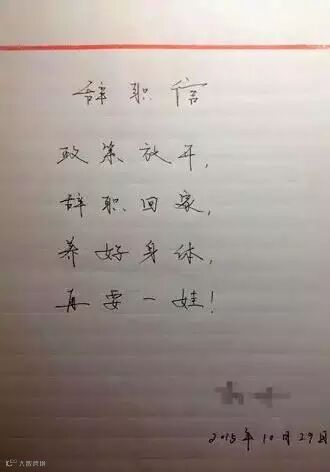 辞职信
政策放开,
辞职回家,
养好身体,
再要一娃!
2015年10月29日
大数跨境